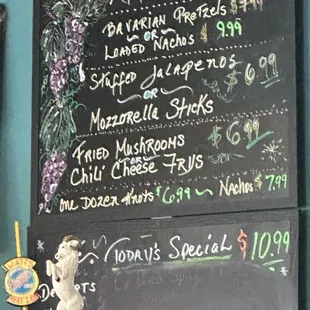 Bavarian Pretzels $7.99
OR
Loaded Nachos $9.99
Stuffed Jalapenos
OR
$6.99
Mozzarella Sticks
Fried Mushrooms
OR
$6.99
Chili Cheese Frys
One Dozen Knots $6.99 ~ Nachos $7.99
Today's Special $10.99